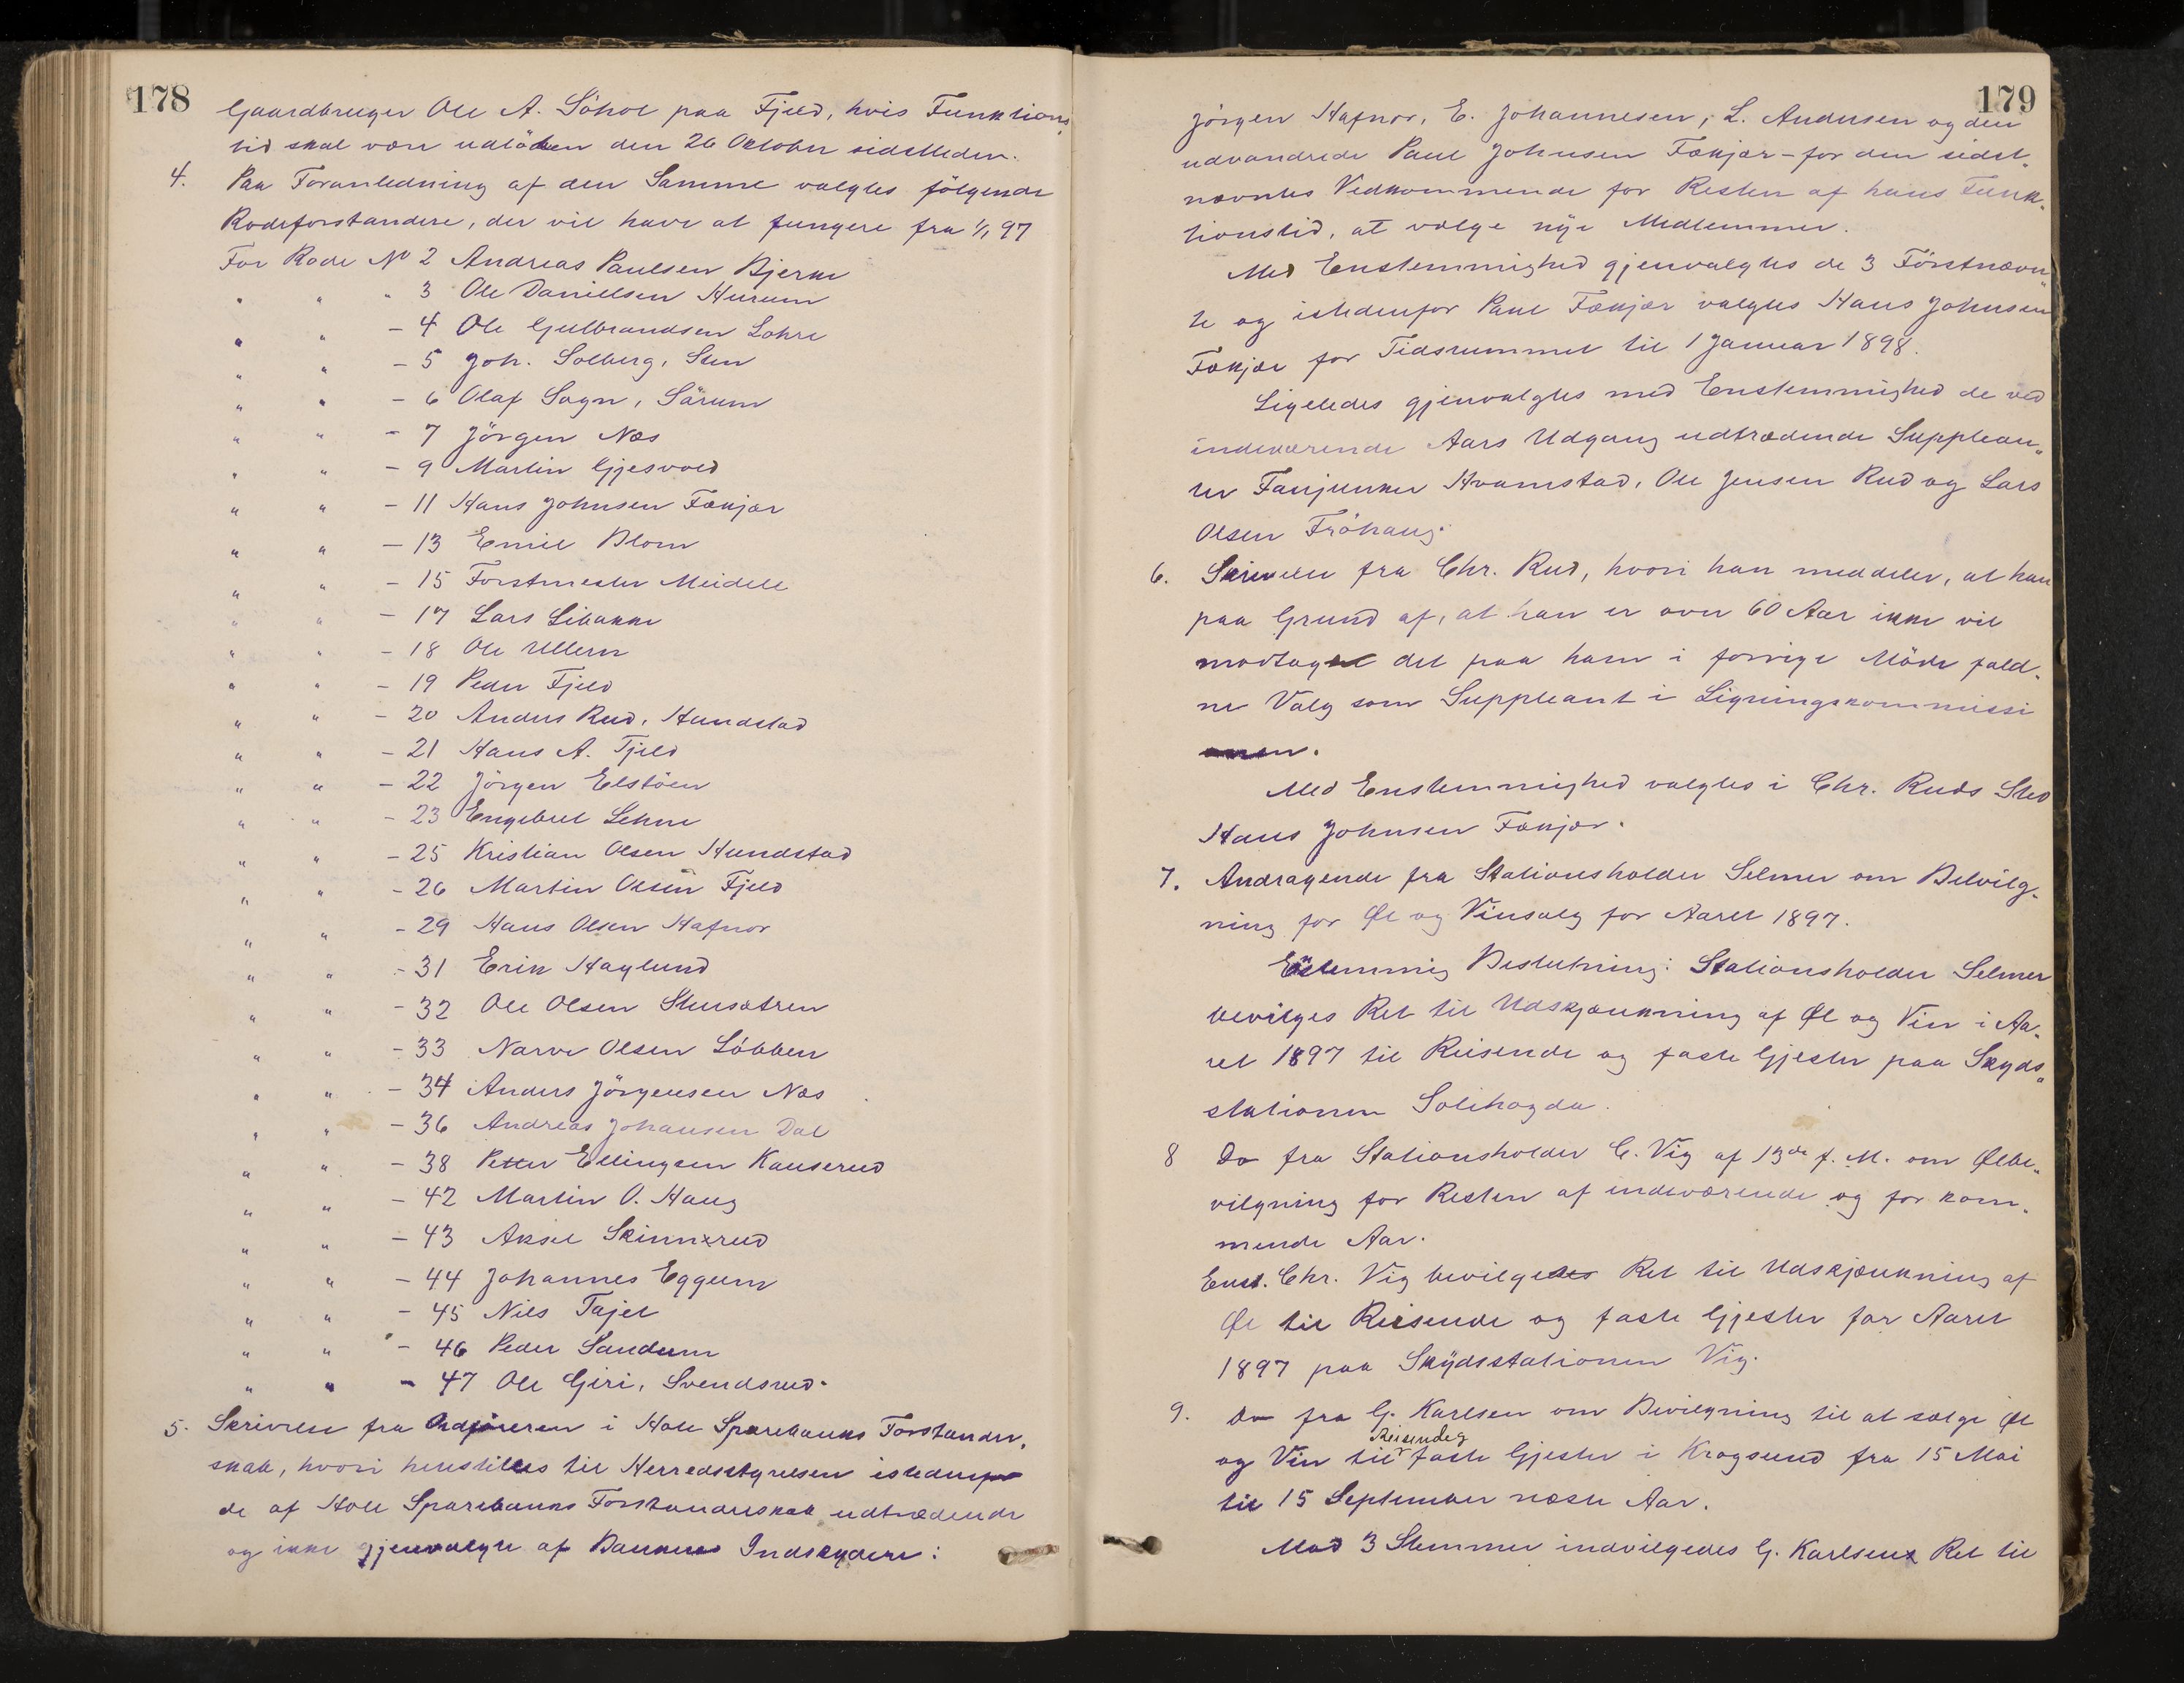 178
Gaardbruger Ole A. Söhol paa Fjeld, hvis Funktions„
tid skal være udlöben den 26 Oktober sidstleden.
4. Paa Foranledning af den Samme valgtes fölgende
Rodeforstandere, der vil have at fungere fra 1/1 97
For Rode No 2 Andreas Paulsen Bjerke
„ „ „ 3 Ole Daniellsen Hurum
„ „ - 4 Ole Gulbrandsen Lohre
„ „ - 5 Joh. Solberg, Sten
„ „ - 6 Olaf Sogn, Särum
„ „ - 7 Jörgen Næs
„ „ - 9 Martin Gjesvold
„ „ - 11 Hans Johnsen Fækjær
„ „ - 13 Emil Blom
„ „ - 15 Forstmester Meidell
„ „ - 17 Lars Libakke
„ „ - 18 Ole Ullern
„ „ - 19 Peder Fjeld
„ „ - 20 Anders Rud, Hundstad
„ „ - 21 Hans A. Fjeld
„ „ - 22 Jörgen Elstöen
„ „ - 23 Engebret Lehne
„ „ - 25 Kristian Olsen Hundstad
„ „ - 26 Martin Olsen Fjeld
„ „ - 29 Hans Olsen Hafnor
„ „ - 31 Erik Haglund
„ „ - 32 Ole Olsen Stursætren
„ „ - 33 Narve Olsen Löbben
„ „ - 34 Anders Jörgensen Næs
„ „ - 36 Andreas Johansen Dal
„ „ - 38 Petter Ellingsen Kauserud
„ „ - 42 Martin O. Haug
„ „ - 43 Aksel Skinnerud
„ „ - 44 Johannes Eggum
„ „ - 45 Nils Tajet
„ „ - 46 Peder Sandum
„ „ - 47 Ole Gjeri, Svendsrud.
5. Skrivelse fra Ordföreren i Hole Sparebanks Forstander„
skab, hvori henstilles til Herredsstyrelsen istedenfor
de af Hole Sparebanks Forstanderskab udtrædende
og ikke gjenvalgte af Bankens Indskydere:
179
Jörgen Hafnor, E. Johannesen, L. Andersen og den
udvandrede Paul Johnsen Fækjær - for den sidst„
nævntes Vedkommende for Resten af hans Funk„
tionstid, at vælge nye Medlemmer.
Med Enstemmighed gjenvalgtes de 3 Förstnævn„
te og istedenfor Paul Fækjær valgtes Hans Johnsen
Fækjær for Tidsrummet til 1 Januar 1898.
Ligeledes gjenvalgtes med Enstemmighed de ved
indeværende Aars Udgang udtrædende Supplean„
ter Fanjunker Hvamstad, Ole Jensen Rud og Lars
Olsen Fröhaug.
6. Skrivelse fra Chr. Rud, hvori han meddeler, at han
paa Grund af, at han er over 60 Aar ikke vil
modtage det paa ham i forrige Möde fald„
ne Valg som Suppleant i Ligningskommissi
onen.
Med Enstemmighed valgtes i Chr. Ruds Sted
Hans Johnsen Fækjær.
7. Andragende fra Stationsholder Selmer om Bevilg„
ning for Øl og Vinsalg for Aaret 1897.
Enstemmig Beslutning: Stationsholder Selmer
bevilges Ret til Udskjænkning af Øl og Vin i Aa„
ret 1897 til Reisende og faste Gjester paa Skyds„
stationen Solihøgda.
8 Do fra Stationsholder C. Vig af 13de f. M. om Ølbe„
vilgning for Resten af indeværende og for kom„
mende Aar.
Enst. Chr. Vig bevilgedes Ret til Udskjænkning af
Øl til Reisende og faste Gjester for Aaret
1897 paa Skydsstationen Vig.
9. Do fra G. Karlsen om Bevilgning til at sælge Øl
og Vin til Reisende og faste Gjester i Krogsund fra 15 Mai
til 15 September næste Aar.
Mod 3 Stemmer indvilgedes G. Karlsens Ret til